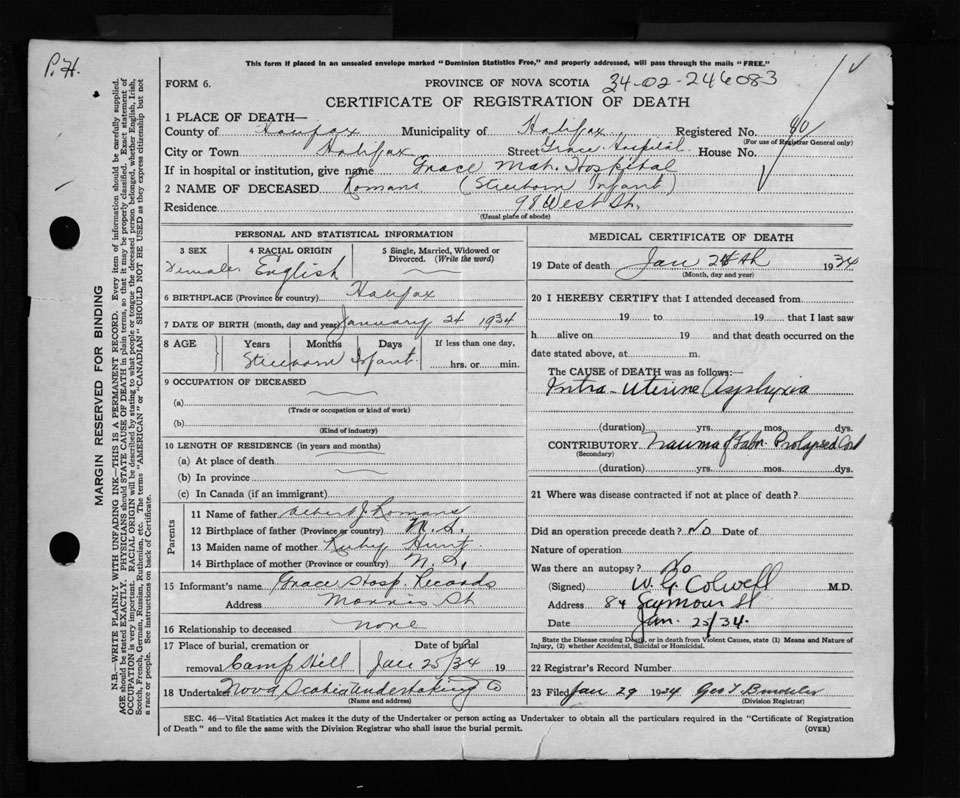 P.H.
This form if placed in an unsealed envelope marked "Dominion Statistics Free," and properly addressed, will pass through the mails "FREE."
FORM 6. PROVINCE OF NOVA SCOTIA 34-02-246083
CERTIFICATE OF REGISTRATION OF DEATH
1 PLACE OF DEATH—
County of Halifax Municipality of Halifax Registered No. 90
(For use of Registrar General only)
City or Town Halifax Street Grace Hospital. House No.
If in hospital or institution, give name Grace Mat. Hospital
2 NAME OF DECEASED Romans (Stillborn Infant)
Residence 98 West St.
(Usual place of abode)
PERSONAL AND STATISTICAL INFORMATION
3 SEX Female
4 RACIAL ORIGIN English
5 Single, Married, Widowed or Divorced. (Write the word)
6 BIRTHPLACE (Province or country) Halifax
7 DATE OF BIRTH (month, day and year) January 24 1934
8 AGE Years Months Days If less than one day,
Stillborn Infant. hrs. or min.
9 OCCUPATION OF DECEASED
(a)
(Trade or occupation or kind of work)
(b)
(Kind of industry)
10 LENGTH OF RESIDENCE (in years and months)
(a) At place of death
(b) In province
(c) In Canada (if an immigrant)
Parents
11 Name of father Albert J. Romans
12 Birthplace of father (Province or country) N.S.
13 Maiden name of mother Ruby Hunt.
14 Birthplace of mother (Province or country) N.S.
15 Informant's name Grace Hosp. Records
Address Morris St
16 Relationship to deceased none
17 Place of burial, cremation or Date of burial
removal Camp Hill Jan 25/34 19
18 Undertaker Nova Scotia Undertaking Co
(Name and address)
MEDICAL CERTIFICATE OF DEATH
19 Date of death Jan 24th 1934
(Month, day and year)
20 I HEREBY CERTIFY that I attended deceased from
19 to 19 that I last saw
h alive on 19 and that death occurred on the
date stated above, at m.
The CAUSE of DEATH was as follows:—
Intra-Uterine Asphyxia
(duration) yrs. mos. dys.
CONTRIBUTORY Trauma of Labor. Prolapsed Cord
(Secondary)
(duration) yrs. mos. dys.
21 Where was disease contracted if not at place of death?
Did an operation precede death? No Date of
Nature of operation
Was there an autopsy? No
(Signed) W. G. Colwell M.D.
Address 84 Seymour St
Date Jan. 25/34.
State the Disease causing Death, or in death from Violent Causes, state (1) Means and Nature of
Injury, (2) whether Accidental, Suicidal or Homicidal.
22 Registrar's Record Number
23 Filed Jan 29 1934 Geo T
(Division Registrar)
SEC. 46—Vital Statistics Act makes it the duty of the Undertaker or person acting as Undertaker to obtain all the particulars required in the "Certificate of Registration
of Death" and to file the same with the Division Registrar who shall issue the burial permit. (OVER)
MARGIN RESERVED FOR BINDING
N.B.—WRITE PLAINLY WITH UNFADING INK—THIS IS A PERMANENT RECORD. Every item of information should be carefully supplied.
AGE should be stated EXACTLY. PHYSICIANS should STATE CAUSE OF DEATH in plain terms, so that it may be properly classified. Exact statement of
OCCUPATION is very important. RACIAL ORIGIN will be described by stating to what people or tongue the deceased person belonged, whether English, Irish,
Scotch, French, German, Russian, Ruthenian, etc. The terms "AMERICAN" or "CANADIAN" SHOULD NOT BE USED as they express citizenship but not
a race or people. See instructions on back of Certificate.